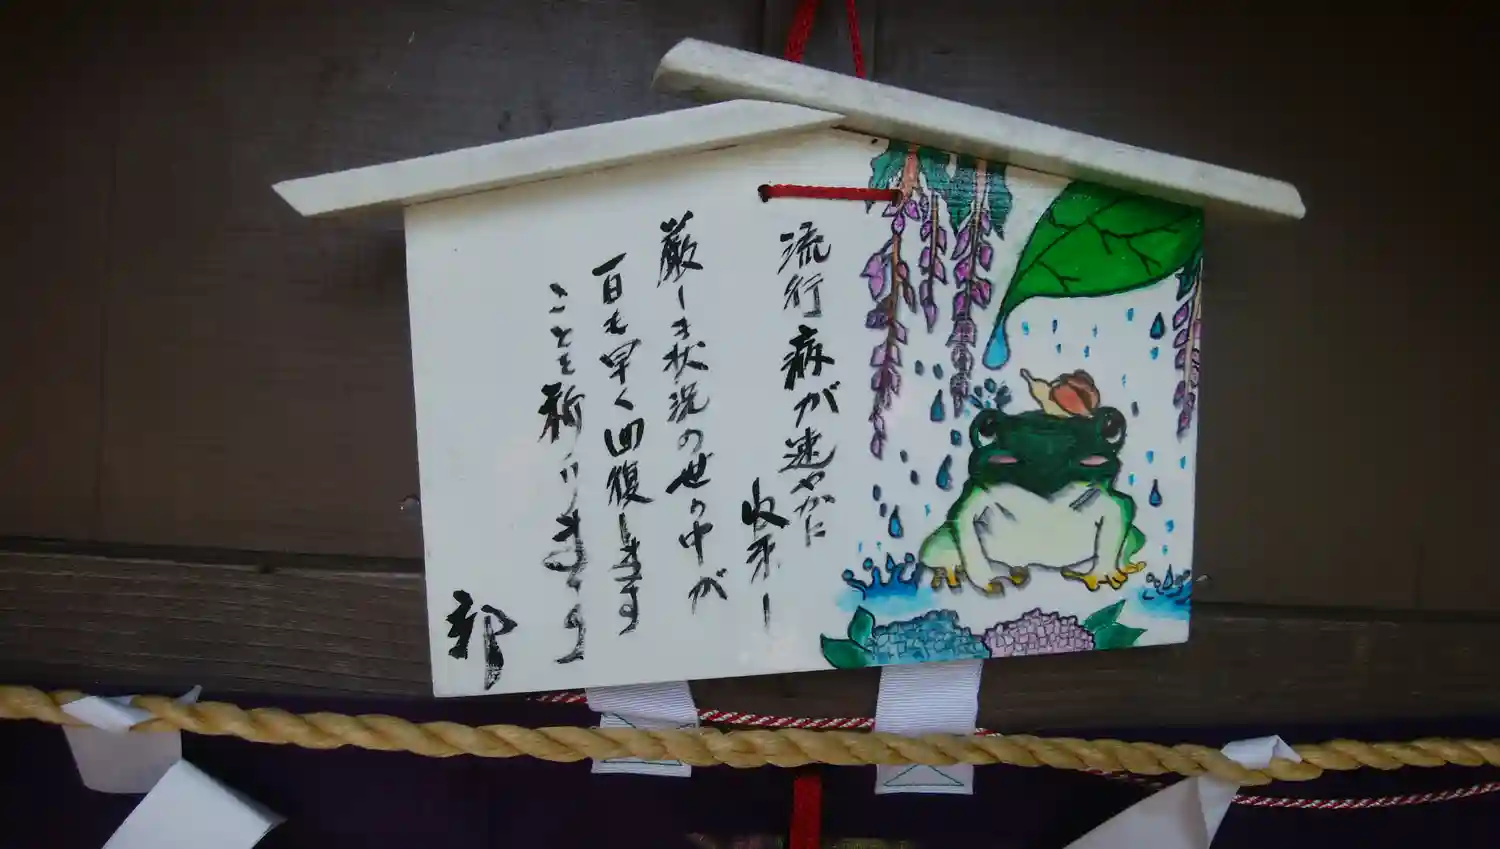 流行病が速やかに
収束し
厳しき状況の世の中が
一日も早く回復します
ことを祈ります